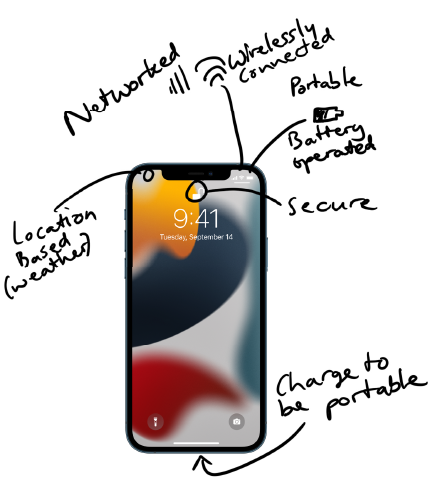 Networked
Wirelessly
Connected
Portable
Battery
operated
Secure
Location
Based
(weather)
9:41
Tuesday, September 14
Charge to
be portable